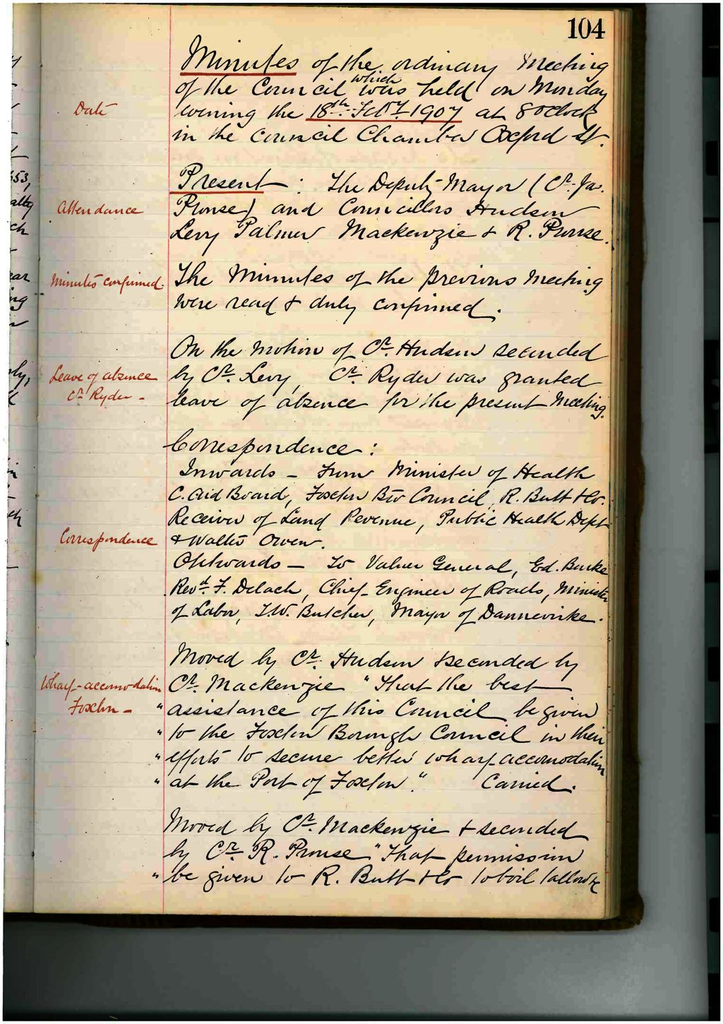 104
Minutes of the ordinary Meeting
of the Council which was held on Monday
Date
evening the 18th Feby 1907 at 8 oclock
in the Council Chamber Oxford St.
Present: The Deputy Mayor (Cr. Jas.
Attendance
Prouse) and Councillors Hudson
Levy Palmer Mackenzie & R. Prouse.
Minutes confirmed.
The Minutes of the previous Meeting
were read & duly confirmed.
On the motion of Cr. Hudson seconded
Leave of absence
Cr Ryder -
by Cr. Levy, Cr. Ryder was granted
leave of absence for the present Meeting.
Correspondence:
Inwards - From Minister of Health
C. Aid Board, Foxton Bro Council, R. Butt & Co.
Receiver of Land Revenue, Public Health Dept
Correspondence
& Walter Owen.
Outwards - To Valuer General, Ed. Burke
Revd. F. Delach, Chief Engineer of Roads, Minister
of Labor, J.W. Butcher, Mayor of Dannevirke.
Moved by Cr. Hudson seconded by
Wharf-accomodation
Foxton -
Cr. Mackenzie "That the best
" assistance of this Council be given
" to the Foxton Borough Council in their
" efforts to secure better wharf accomodation
" at the Port of Foxton." Carried.
Moved by Cr. Mackenzie & seconded
by Cr. R. Prouse "That permission
" be given to R. Butt & Co to boil tallow &c